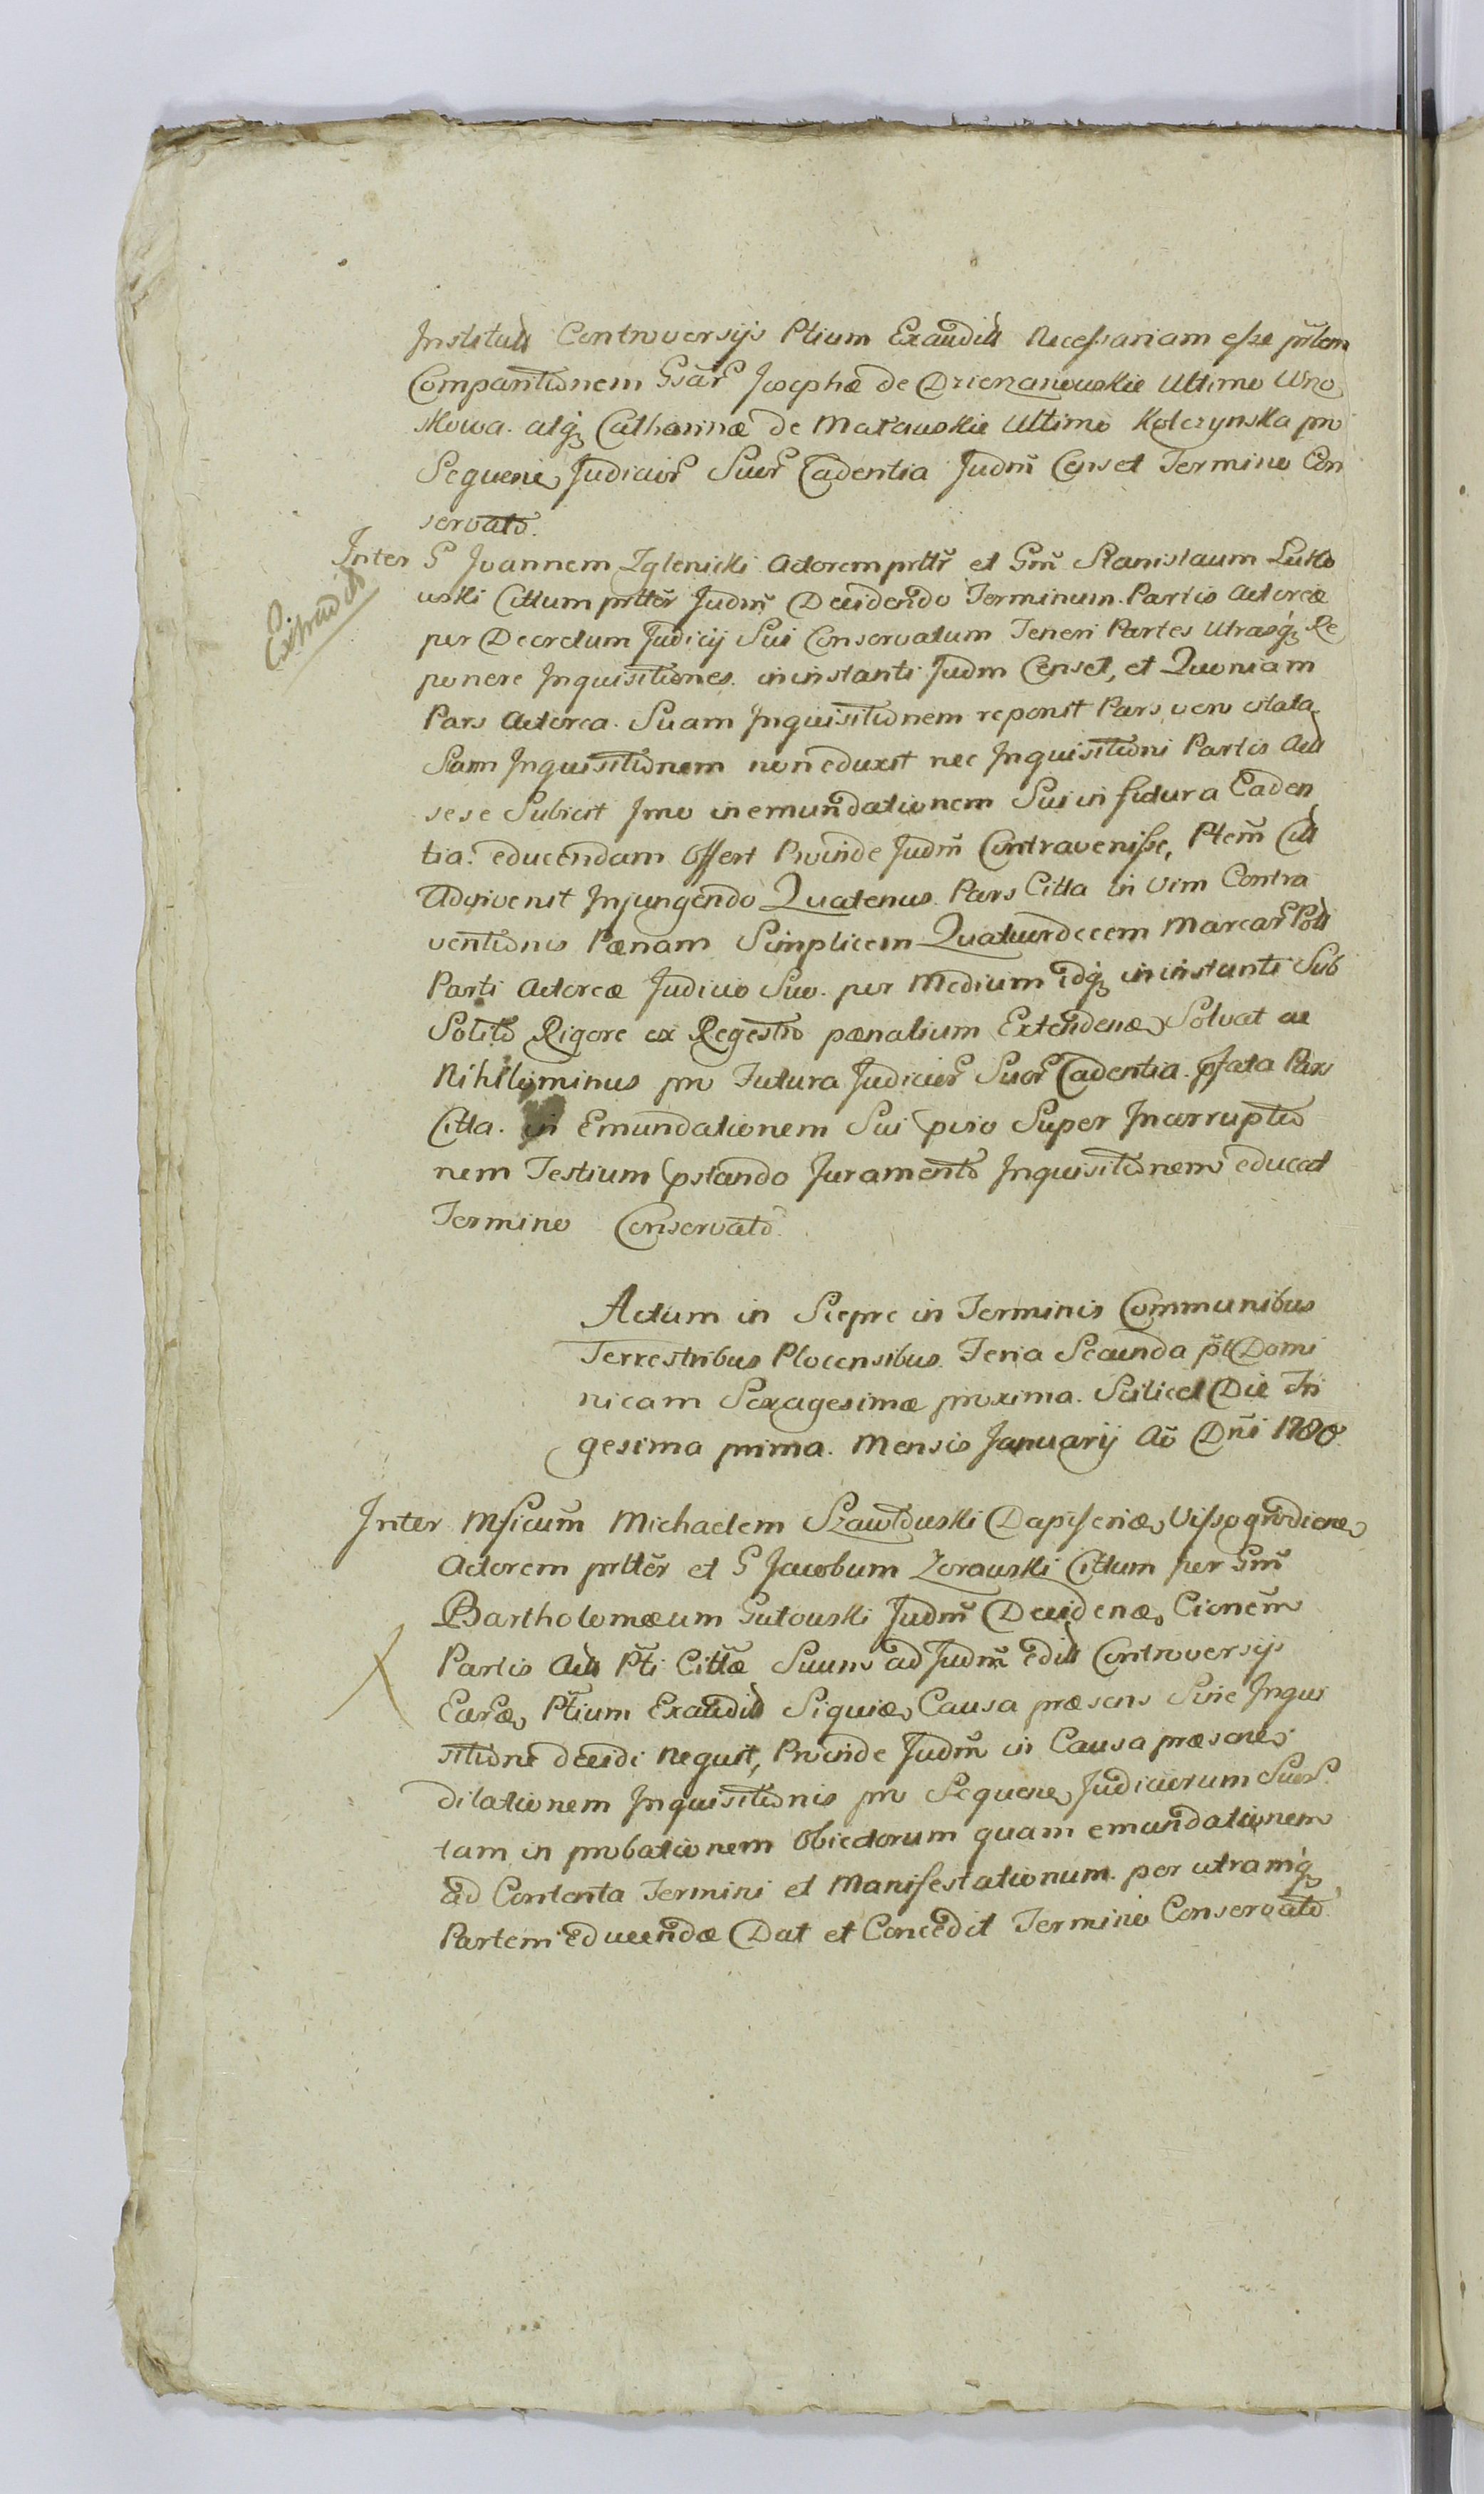 Institutis Controversijs Ptium Exauditis Necessariam esse prñtem
Comparitionem Gsar Josephæ de Dzierzanowskie Ultimo Wno
skowa. atq Catharinæ de Makowskie Ultimo Kolczynska pro
Sequenė Judicior Suor Cadentia Judm̃ Censet Termino Con
servato.
Inter G Joannem Zglenicki Actorem prttr̃ et Gm̃ Stanislaum Lutko
uski Cittum prttẽr Judm̃ Decidendo Terminum. Partis Actoreæ
per Decretum Judicij Sui Conservatum Teneri Partes Utrasq Re
ponere Inquisitiones. in instanti Judm Censet, et Quoniam
Pars Actorea. Suam Inquisitionem reponit Pars vero citata
Suam Inquisitionem non eduxit nec Inquisitioni Partis Actt
sese Subicit Imo in emundationem Sui in futura Caden
tia. educendam Offert Proinde Judm̃ Contravenisse, Ptem̃ Citt
Adinvenit Injungendo Quatenus. Pars Citta in Vim Contra
ventionis Pænam Simplicem Quatuordecem Marcar Poll
Parti Actoreæ Judicio Suo. per Medium idq in instanti Sub
Solito Rigore ex Regestro pænalium Extendenæ Solvat ac
Nihilominus pro Futura Judicior Suor Cadentia. pfata Pars
Citta. in Emundationem Sui pvio Super Incorruptio
nem Testium pstando Juramento Inquisitionem educat
Termino Conservato.
Extraditt
Actum in Sierpc in Terminis Communibus
Terrestribus Plocensibus. Feria Secunda p̃t Domi
nicam Sexagesimæ proxima. Scilicet Die Tri
gesima prima. Mensis Januarij Aõ Dñi 1780.
Inter Mficum̃ Michaelem Szawłowski Dapiferiæ Vissogrodienæ
Actorem prttẽr et G Jacobum Zorauski Cittum per Gm̃
Bartholomæum Gutouski Judm̃ Decidenæ, Cionem̃
Partis Actt Pti Cittæ Suum ad Judm̃ editt Controversijs
Earæ, Ptium Exauditt Siquiæ Causa præsens Sine Inqui
sitione decidi nequit, Proinde Judm̃ in Causa præsenė
dilationem Inquisitionis pro Sequenė Judiciorum Suor
tam in probationem Obiectorum quam emundationem
ad Contenta Termini et Manifestationum. per utramq
Partem Educendæ Dat et Concedit Termino Conservato.